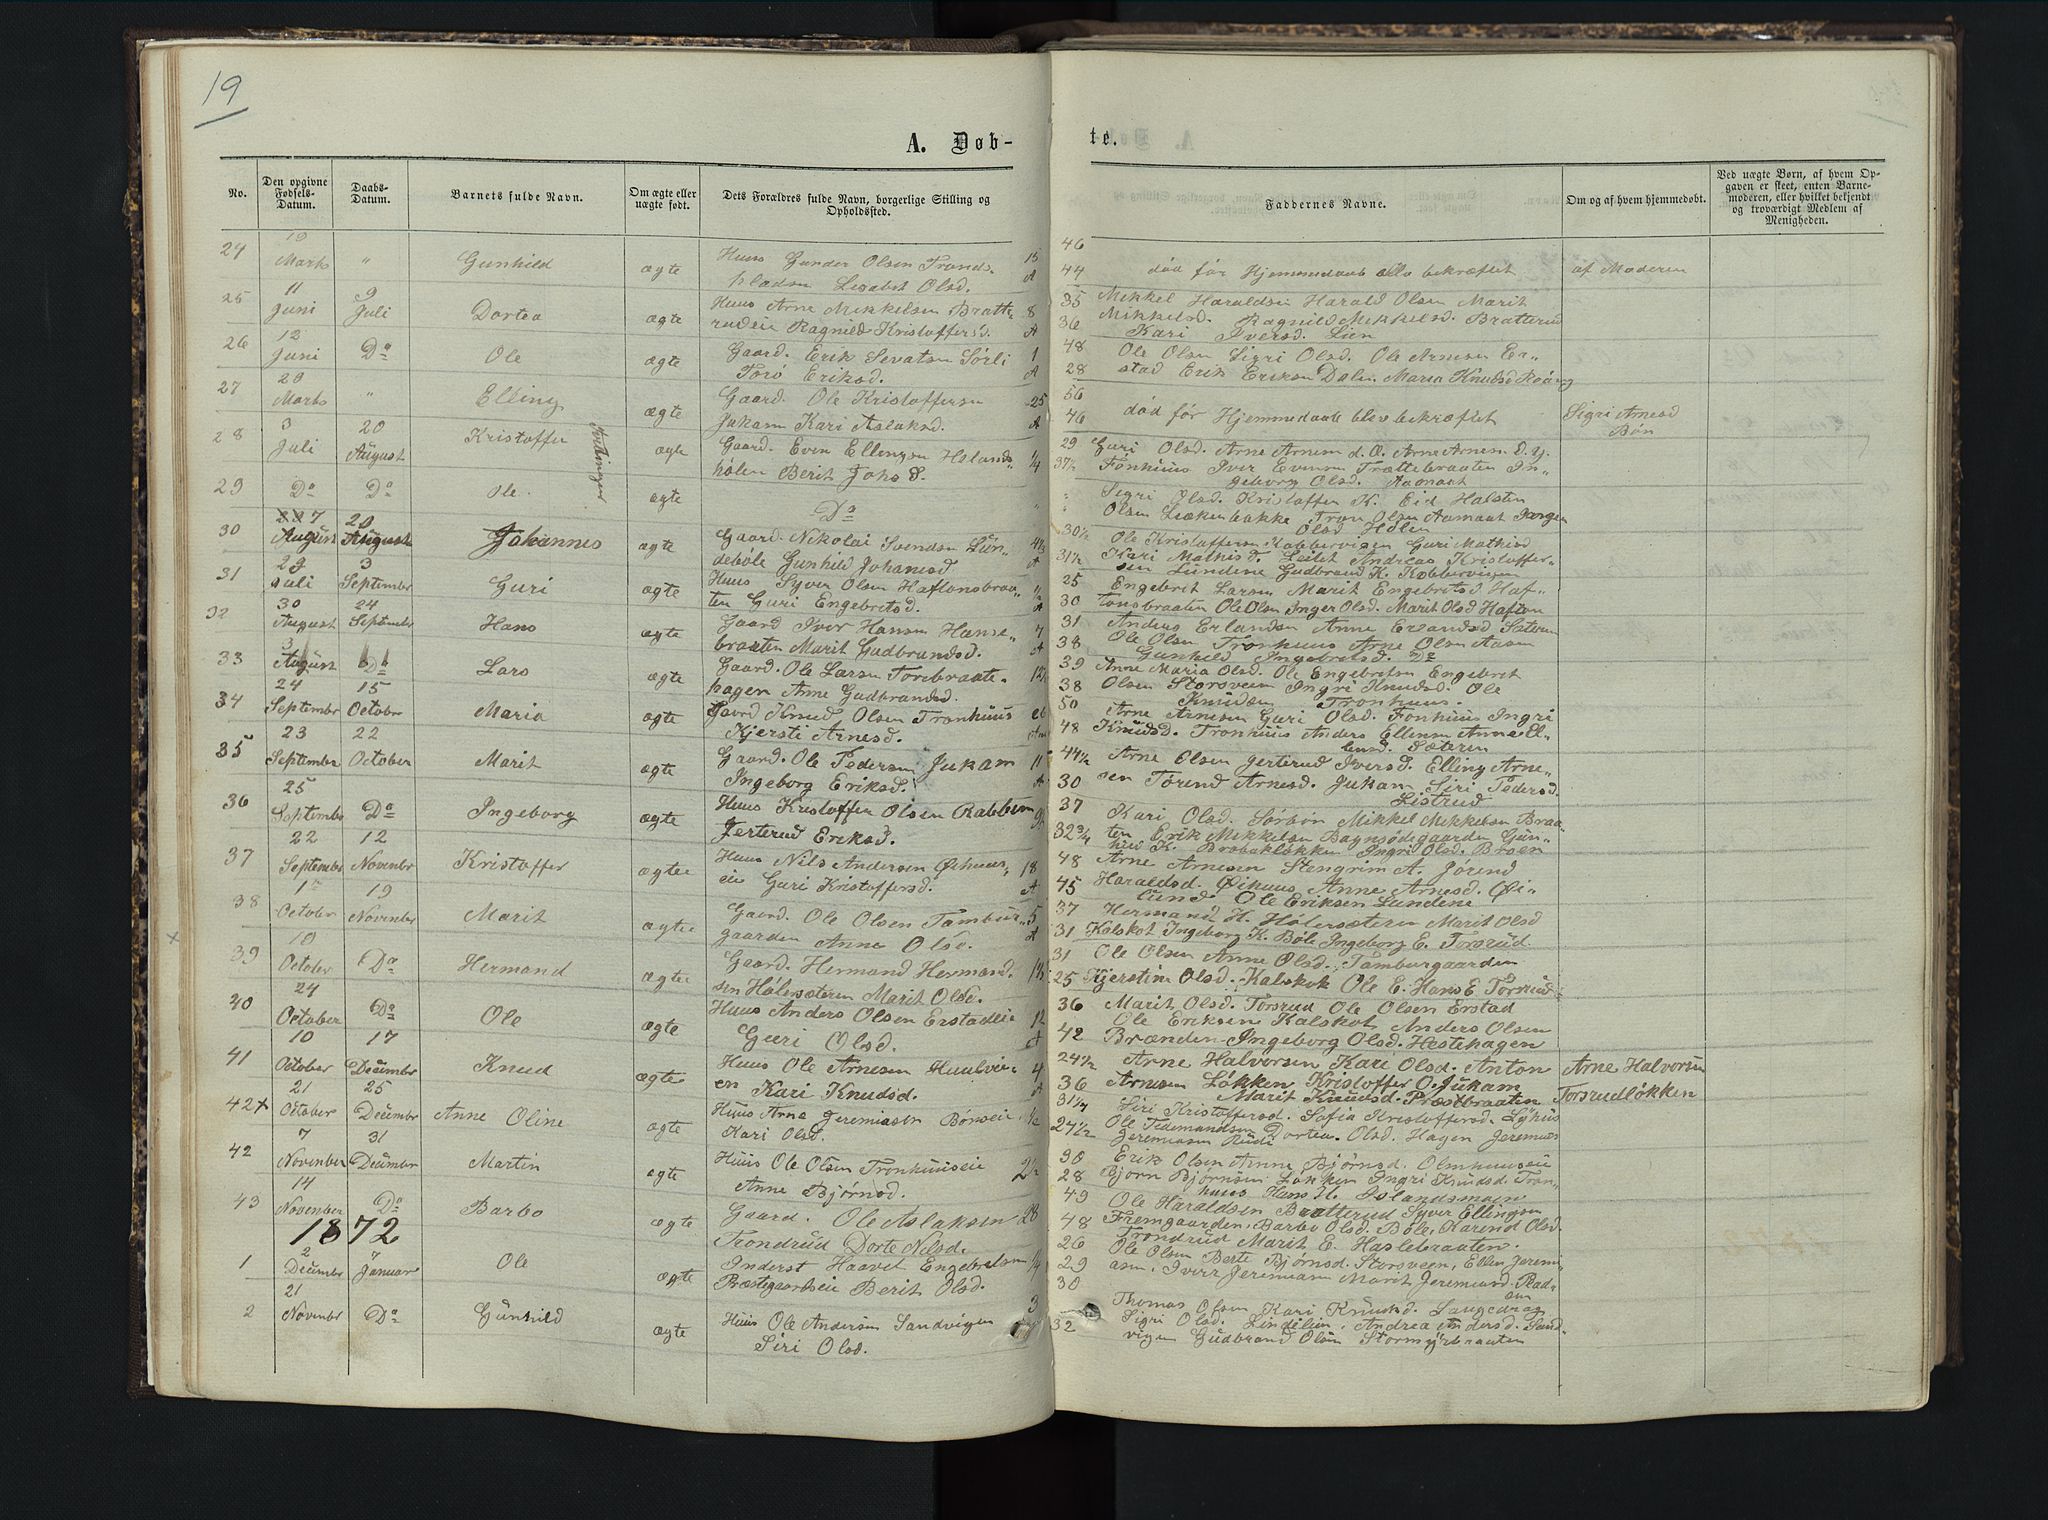 19
A. Døb-
te.
No.
Den opgivne Fødsels-Datum.
Daabs-Datum.
Barnets fulde Navn.
Om ægte eller uægte født.
Dets Forældres fulde Navn, borgerlige Stilling og Opholdssted.
Faddernes Navne.
Om og af hvem hjemmedøbt.
Ved uægte Børn, af hvem Opgaven er skeet, enten Barnemoderen, eller hvilket bekjendt og troværdigt Medlem af Menigheden.
24 19 Marts " Gunhild ægte Huus Gunder Olsen Tronds-
pladsen Lisabet Olsd.
46
44 død før Hjemmedaab blev bekræftet af Moderen
25 11 Juni 9 Juli Dortea ægte Huus Arne Mikkelsen Bratte- 8
rudeie Ragnild Kristoffersd. A
35 Mikkel Haraldsen Harald Olsen Marit
36 Mikkelsd. Ragnild Mikkelsd. Bratterud
Kari Iversd. Lien
26 12 Juni Do Ole ægte Gaard. Erik Sevatsen Sørli 1
Torö Eriksd. A
48 Ole Olsen Sigri Olsd. Ole Arnesen Er-
28 stad Erik Eriksen Dalen Maria Knudsd
27 20 Marts " Elling ægte Gaard. Ole Kristoffersen 25
Jukam Kari Aslaksd. A
56
46 død før Hjemmedaab blev bekræftet Sigri Arnesd
Bøn
28 3 Juli 20 August Kristoffer ægte Gaard. Even Ellingsen
hølen Berit Johsd. 1/4
Tvillinger
29 Guri Olsd. Arne Arnesen d. Æ. Arne Arnesen d. y.
37½ Fonhuus Iver Evensen Trættebraaten In-
geborg Olsd. Aamaat
29 Do Do Ole ægte Do
Sigri Olsd. Kristoffer K. Eid Halsten
Olsen Lækenbakke Tron Olsen Aamaat Jørgen
Olsd Hølen
30 7 August 20 August Johannes ægte Gaard. Nikolai Svendsen Lün-
debøle Gunhild Johansd A
30½ Ole Kristoffersen Kobbervigen Guri Mathisd
31½ Kari Mathisd. Leitet Andreas Kristoffer-
sen Lundene Gudbrand K. Kobbervigen
31 29 Juli 3 September Guri ægte Huus Syver Olsen Haftonsbraa-
ten Guri Engebretsd. A
25 Engebret Larsen Marit Engebretsd Haf-
30 tonsbraaten Ole Olsen Inger Olsd. Marit Olsd Hafton
32 30 August 24 September Hans ægte Gaard Iver Hansen Hanse- 7
braaten Marit Gudbrandsd. A
31 Anders Erlandsen Anne Erlandsd Sæteren
38 Ole Olsen Tronhuus Arne Olsen Aasen
Gunhild Ingebretsd. Do
33 3 August Do Lars ægte Gaard. Ole Larsen Torebraate-
hagen Anne Gudbrandsd.
39 Anne Maria Olsd. Ole Engebretsen Engebret
38 Olsen Storsveen Ingri Knudsd. Ole
Knudsen Tronhuus.
34 24 September 15 October Maria ægte Gaard Knud Olsen Tronhuus 26
Kjersti Arnesd.
50 Arne Arnesen Guri Olsd. Fonhuus Ingri
48 Knudsd. Tronhuus Anders Ellensen Anne El-
lensd. Sæteren
35 23 September 22 October Marit ægte Gaard. Ole Pedersen Jukam 11
Ingeborg Eriksd. A
44½ Arne Olsen Gerterud Iversd. Elling Arne-
30 sen Torend Arnesd. Jukam Siri Pedersd.
Listrud
36 25 September Do Ingeborg ægte Huus Kristoffer Olsen
Jerterud Eriksd.
37 Kari Olsd. Sørbøn Mikkel Mikkelsen Braa-
32¾ ten Erik Mikkelsen Bagnsødegaarden Gun-
hild K. Brobakløkken Ingri Olsd. Broen
37 22 September 12 November Kristoffer ægte Huus Nils Andersen Øihuus- 18
eie Guri Kristoffersd. A
48 Arne Arnesen Stengrim A. Jørend
45 Haraldsd. Øihuus Anne Arnesd. Øi-
lund Ole Eriksen Lundene
38 October 19 November Marit ægte Gaard. Ole Olsen Tambur- 5
gaarden Anne Olsd. A
37 Hermand H. Hølersæteren Marit Olsd
31 Kalskot Ingeborg K. Bøle Ingeborg E. Torsrud
39 10 October Do Hermand ægte Gaard. Hermand Hermand-
sen Hølersæteren Marit Olsd.
31 Ole Olsen Anne Olsd. Tamburgaarden
25 Kjerstine Olsd. Kalskok Ole E. Hans E. Torsrud
40 24 October Do Ole ægte Huus Anders Olsen Erstadeie 12
Guri Olsd. A
36 Marit Olsd. Torsrud Ole Olsen Erstad
Ole Eriksen Kalskot Anders Olsen
42 Brænden Ingeborg Olsd. Hestehagen
41 10 October 17 Decimbr Knud ægte Huus Ole Arnesen 4
Kari Knudsd. A
24½ Arne Halvorsen Kari Olsd. Anton Arne Halvorsen
36 Arnesen Løkken Kristoffer O. Jukam Torsrudløkken
Marit Knudsd. Præstbraaten
42+ 21 October 25 Decimbr Anne Oline ægte Huus Arne Jeremiasen Bønseie ½
Kari Olsd.
31¼ Siri Kristoffersd. Sofia Kristoffersd.
24½ Ole Tidemandsen Dortea Olsd. Hagen Jeremias
Jeremiasen Rudi
42 7 November 31 Decimbr Martin ægte Huus Ole Olsen Tronhuuseie
Anne Bjørnsd.
30 Erik Olsen Anne Bjørnsd. Olmhuuseie
28 Bjørn Bjørnsen Løkken Ingri Knudsd. Tron-
huus Hans H. Islandsmoen
43 14 November Do Barbo ægte Gaard. Ole Aslaksen 28
Trondrud Dorte Nilsd.
49 Ole Haraldsen Bratterud Syver Ellingsen
48 Fremgaarden, Barbo Olsd. Bøle, Karend Olsd.
Trondrud Marit E. Haslebraaten.
1872
1 2 Decimbr 7 Januar Ole ægte Inderst Haavet Engebretsen ¼
Præstegaardseie Berit Olsd.
26 Ole Olsen Berte Bjørnsd. Storsveen, Ellen Jeremi-
29 asen, Iver Jeremiasen Marit Jeremiasd.
30
2 21 Novembr Do Gunhild ægte Huus Ole Andersen Sandvigen 3
Siri Olsd.
Thomas Olsen Kari Knudsd. Langedrag
32 Sigri Olsd. Lindelien, Andrea Andersd. Sand-
vigen Gudbrand Olsen Stormyrbraaten